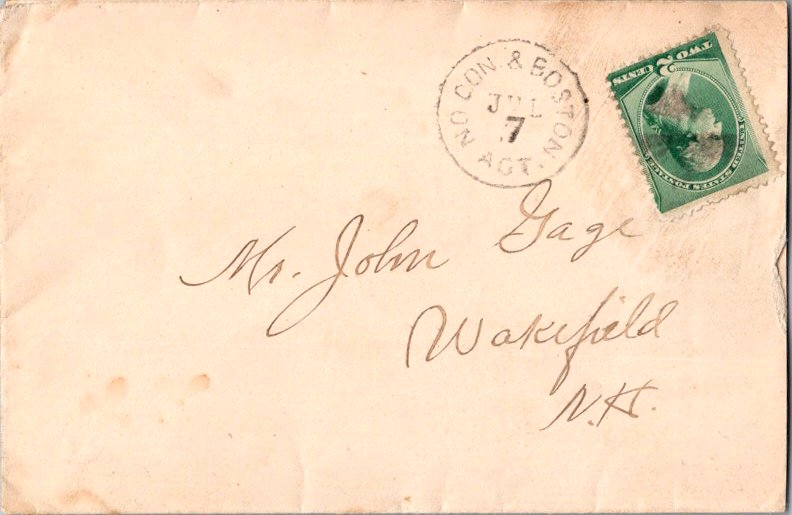 NO CON & BOSTON
JUL
7
AGT.
TWO 2 CENTS
UNITED STATES POSTAGE
Mr. John Gage
Wakefield
N.H.